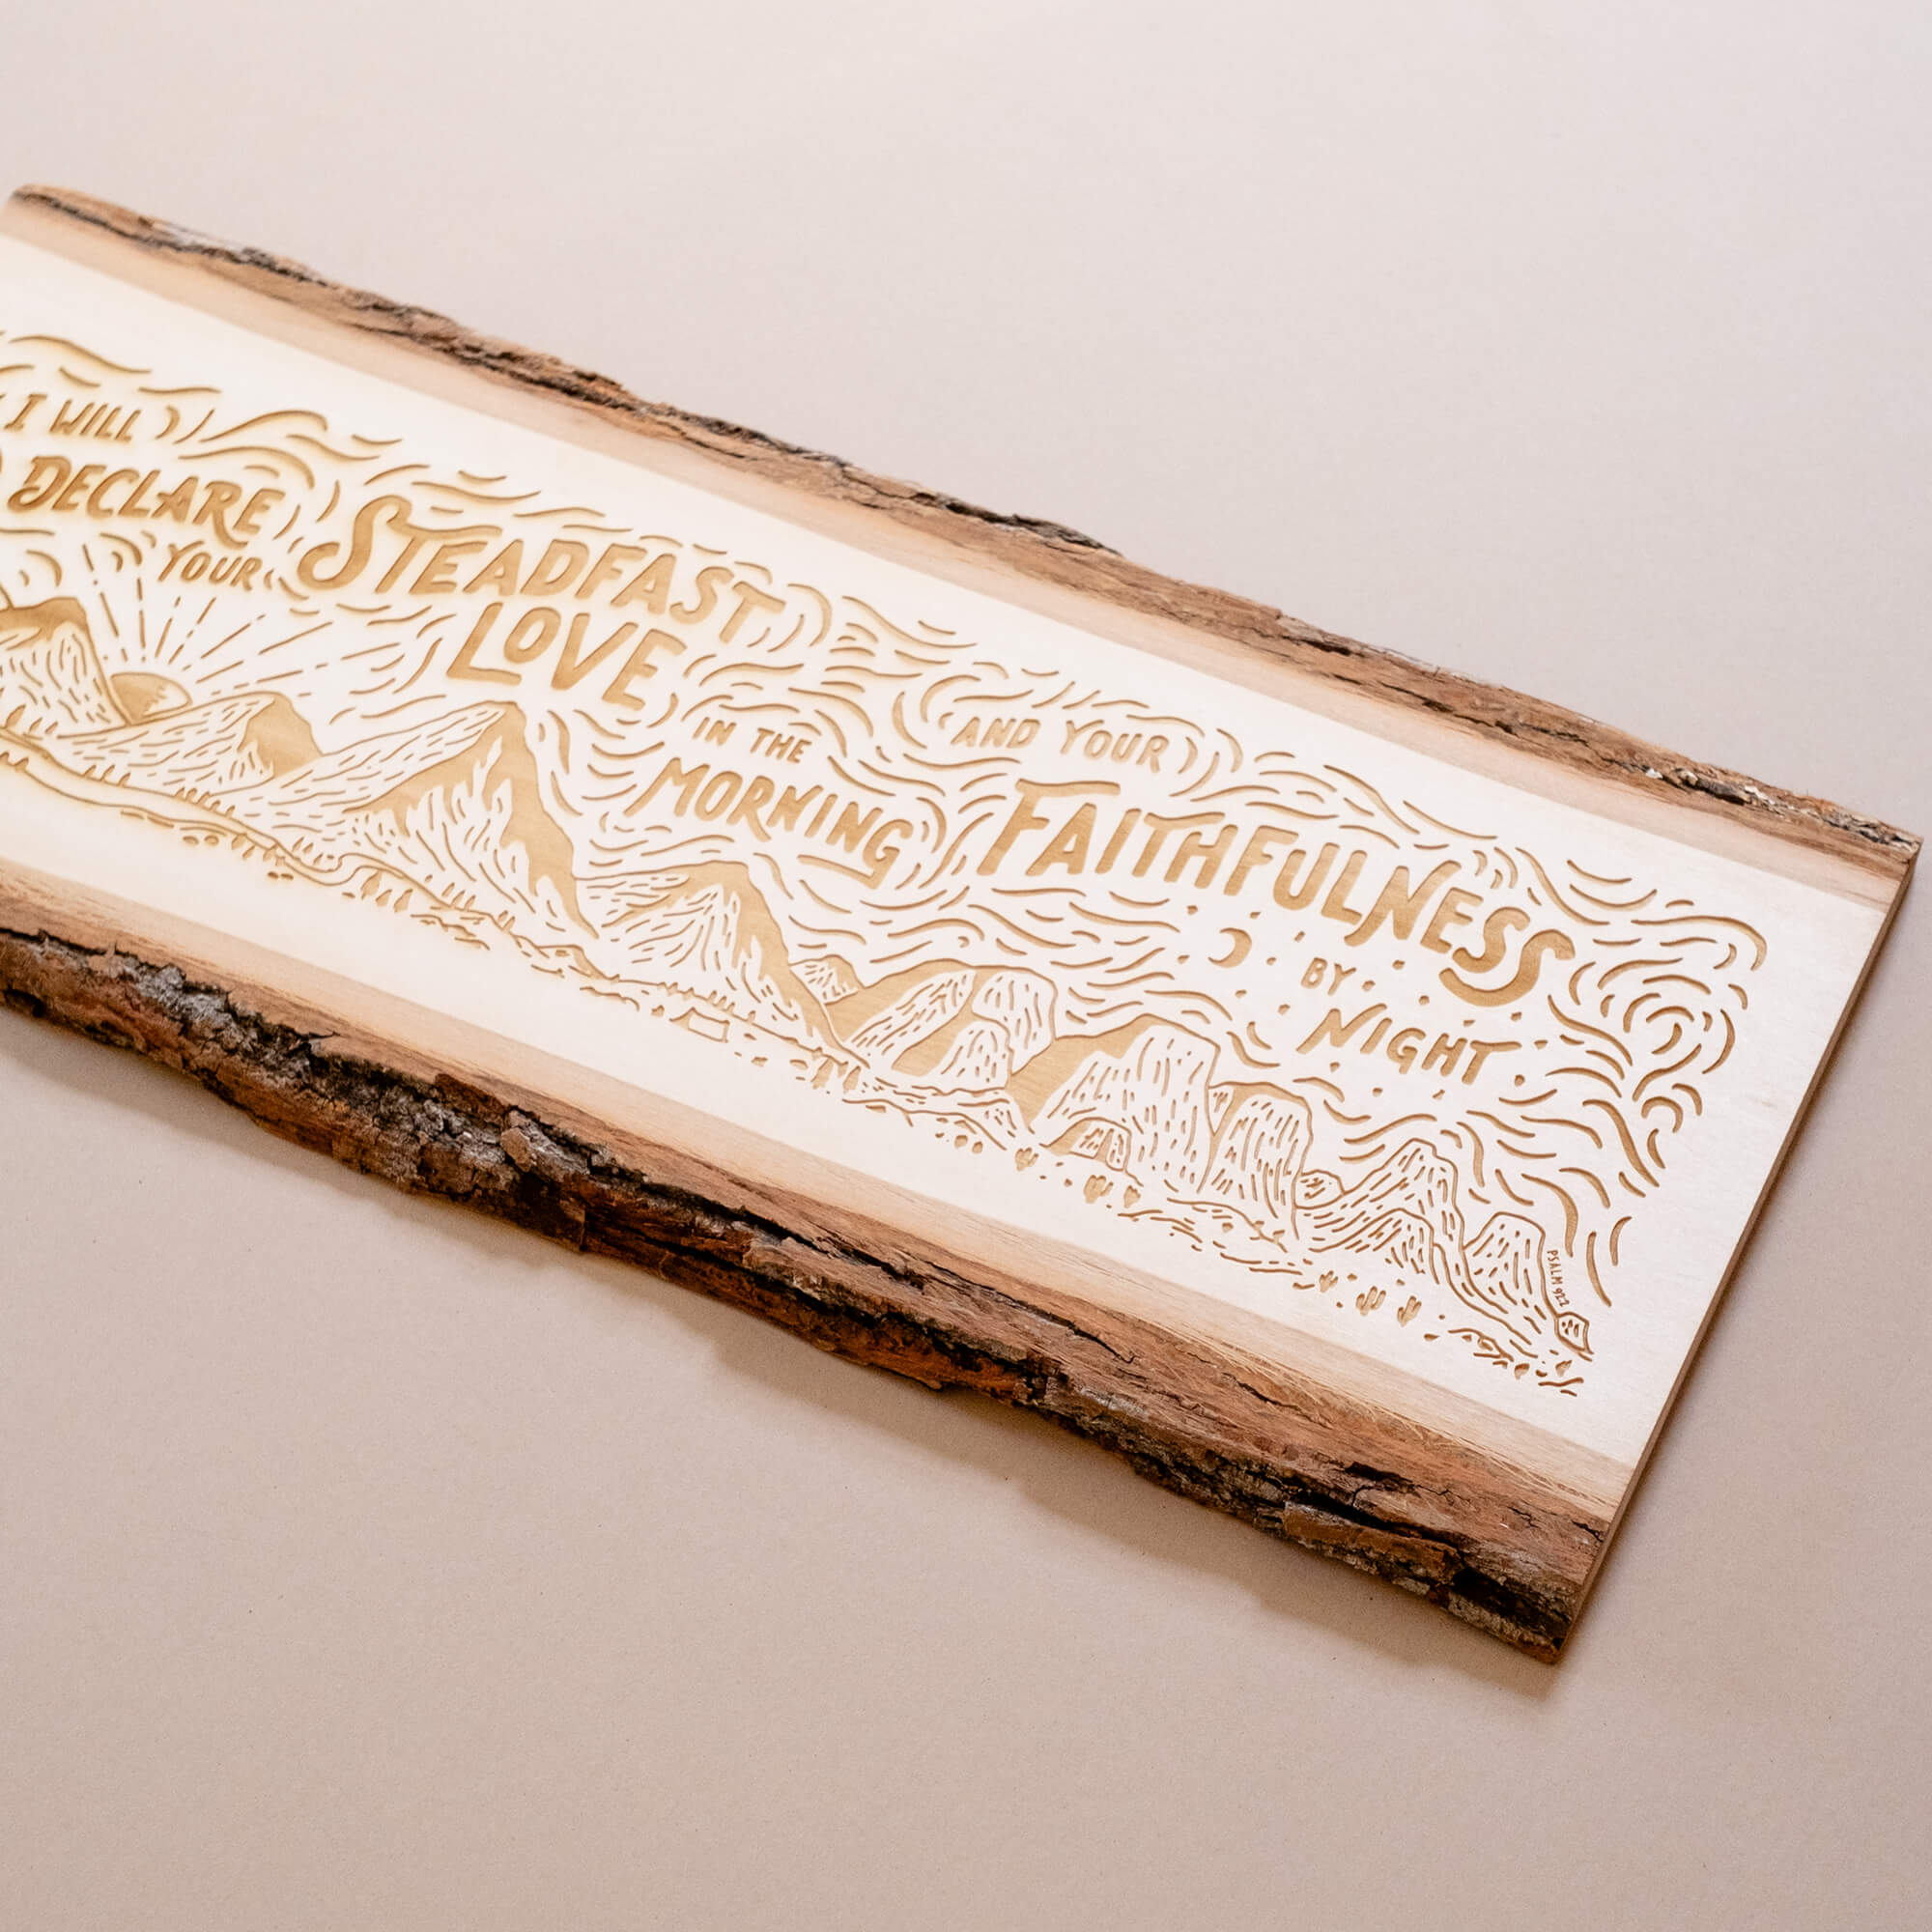 I WILL
DECLARE
YOUR
STEADFAST
LOVE
IN THE
MORNING
AND YOUR
FAITHFULNESS
BY
NIGHT
PSALM 92:2